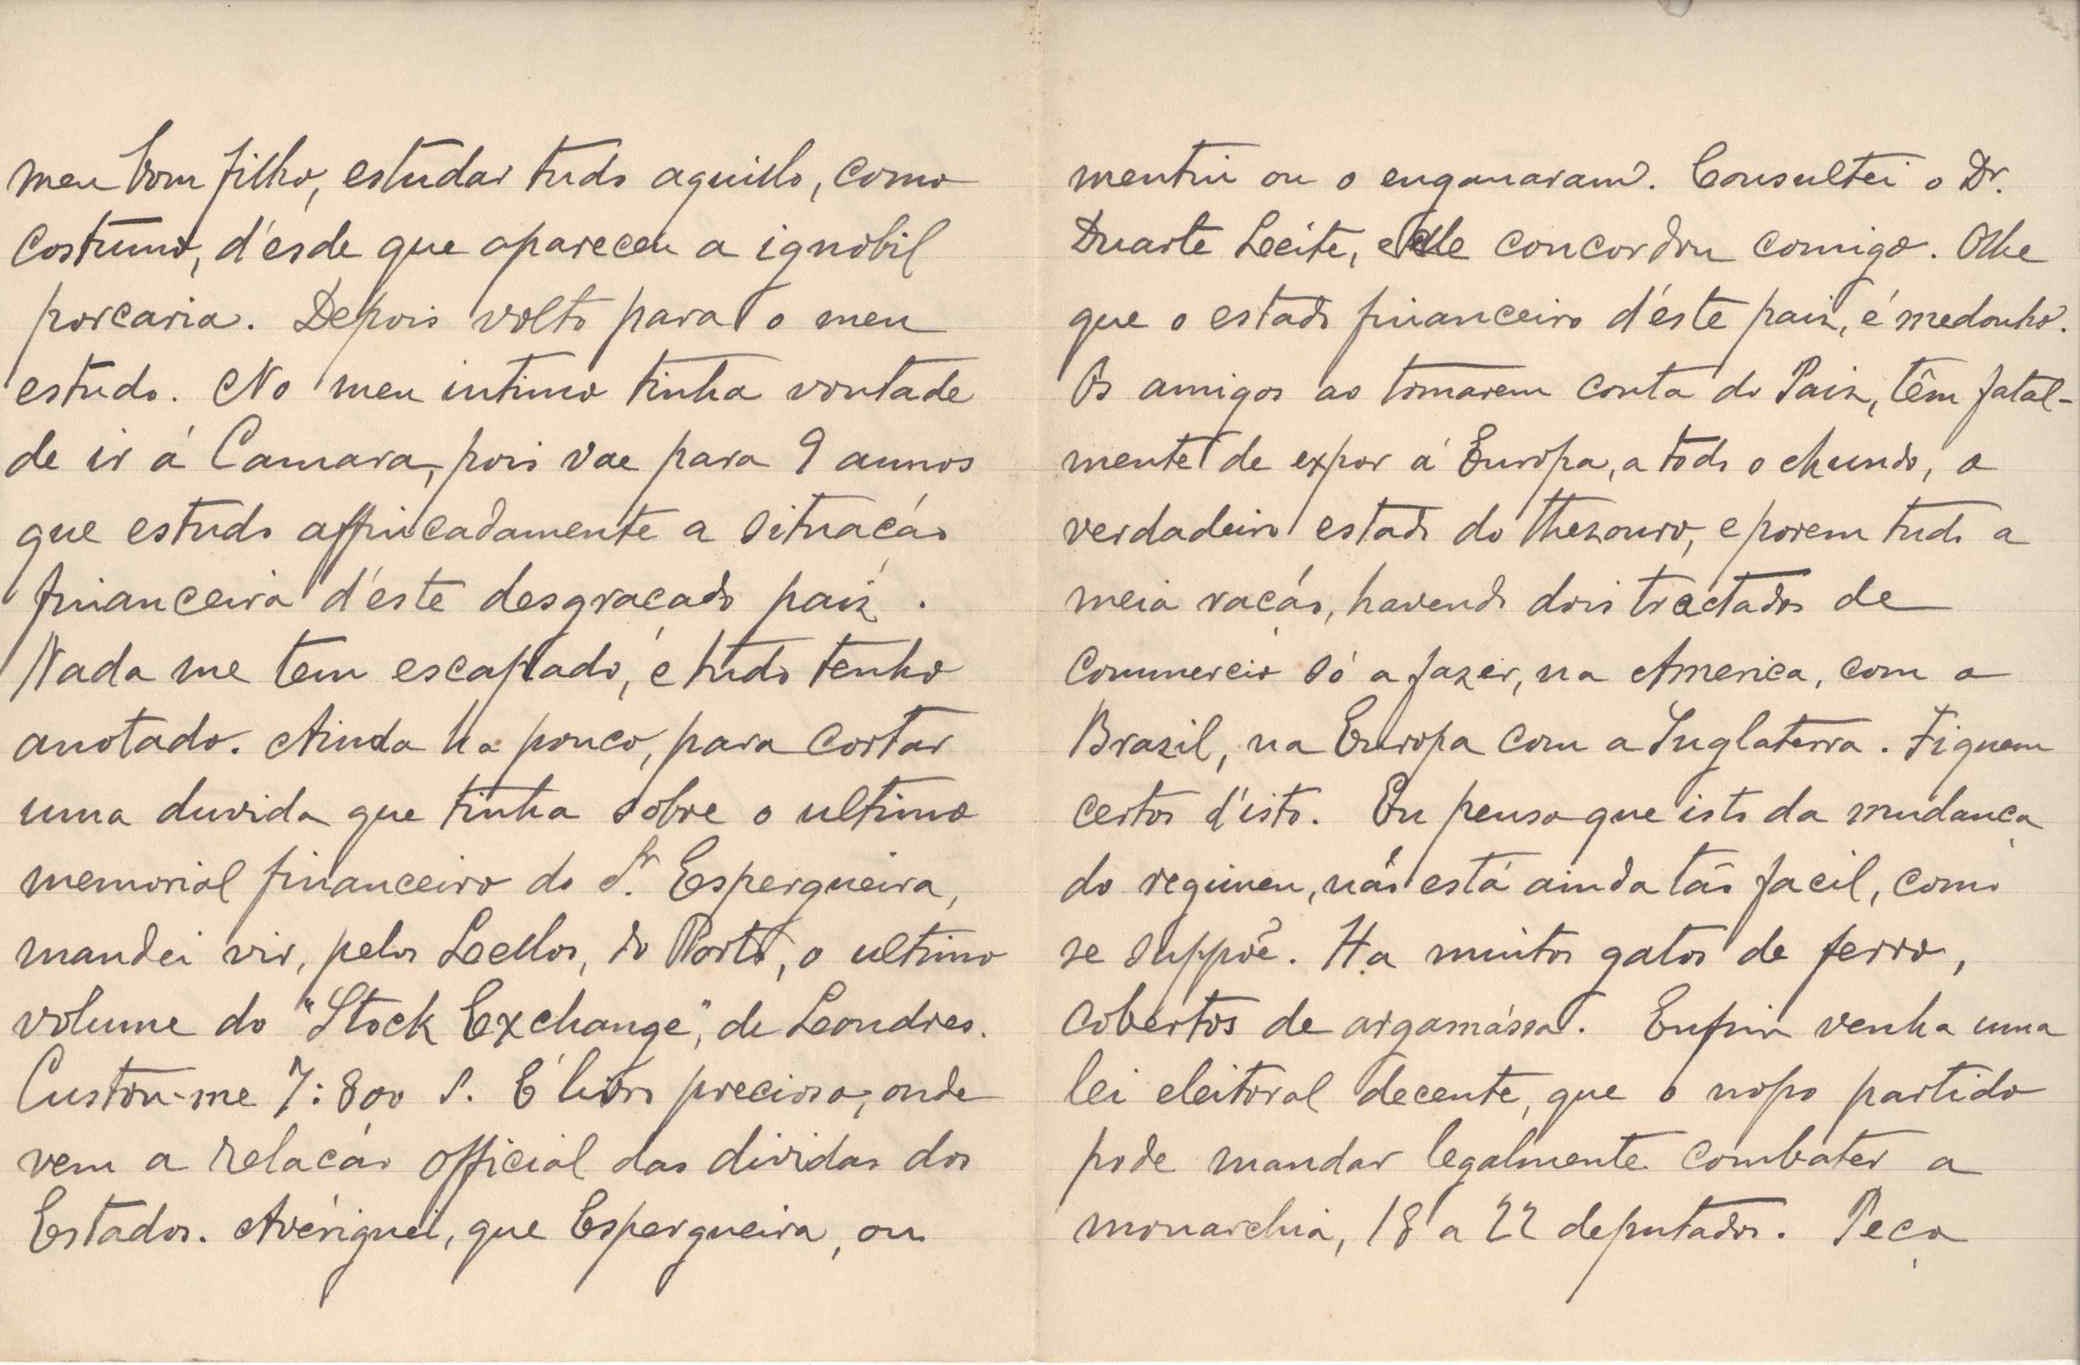 meu bom filho, estudar tudo aquillo, como
costumo, d'esde que apareceu a ignobil
porcaria. Depois volto para o meu
estudo. No meu intimo tinha vontade
de ir á Camara, pois vae para 9 annos
que estudo affincadamente a situação
financeira d'éste desgraçado paiz.
Nada me tem escapado, e tudo tenho
anotado. Ainda ha pouco, para cortar
uma duvida que tinha sobre o ultimo
memorial financeiro do Sr. Espergueira,
mandei vir, pelos Lellos, do Porto, o ultimo
volume do "Stock Exchange", de Leondres.
Custou-me 7:800 S. E' livro precioso, onde
vem a relação official das dividas dos
Estados. Avériguei, que Espergueira, ou
mentiu ou o enganaram. Consultei o Dr.
Duarte Leite, e elle concordou comigo. Olhe
que o estado financeiro d'éste paiz, é medonho.
Os amigos ao tomarem conta do Paiz, têm fatal-
mente de expor á Europa, a todo o Mundo, o
verdadeiro estado do Thezouro, e porem tudo a
meia ração, havendo dois tractados de
commercio só a fazer, na America, com o
Brazil, na Europa com a Inglaterra. Fiquem
certos d'isto. Eu penso que isto da mudança
do regimen, não está ainda tão facil, como
se suppõe. Ha muitos gatos de ferro,
cobertos de argamássa. Enfim venha uma
lei eleitoral decente, que o nosso partido
pode mandar legalmente combater a
monarchia, 18 a 22 deputados. Peço